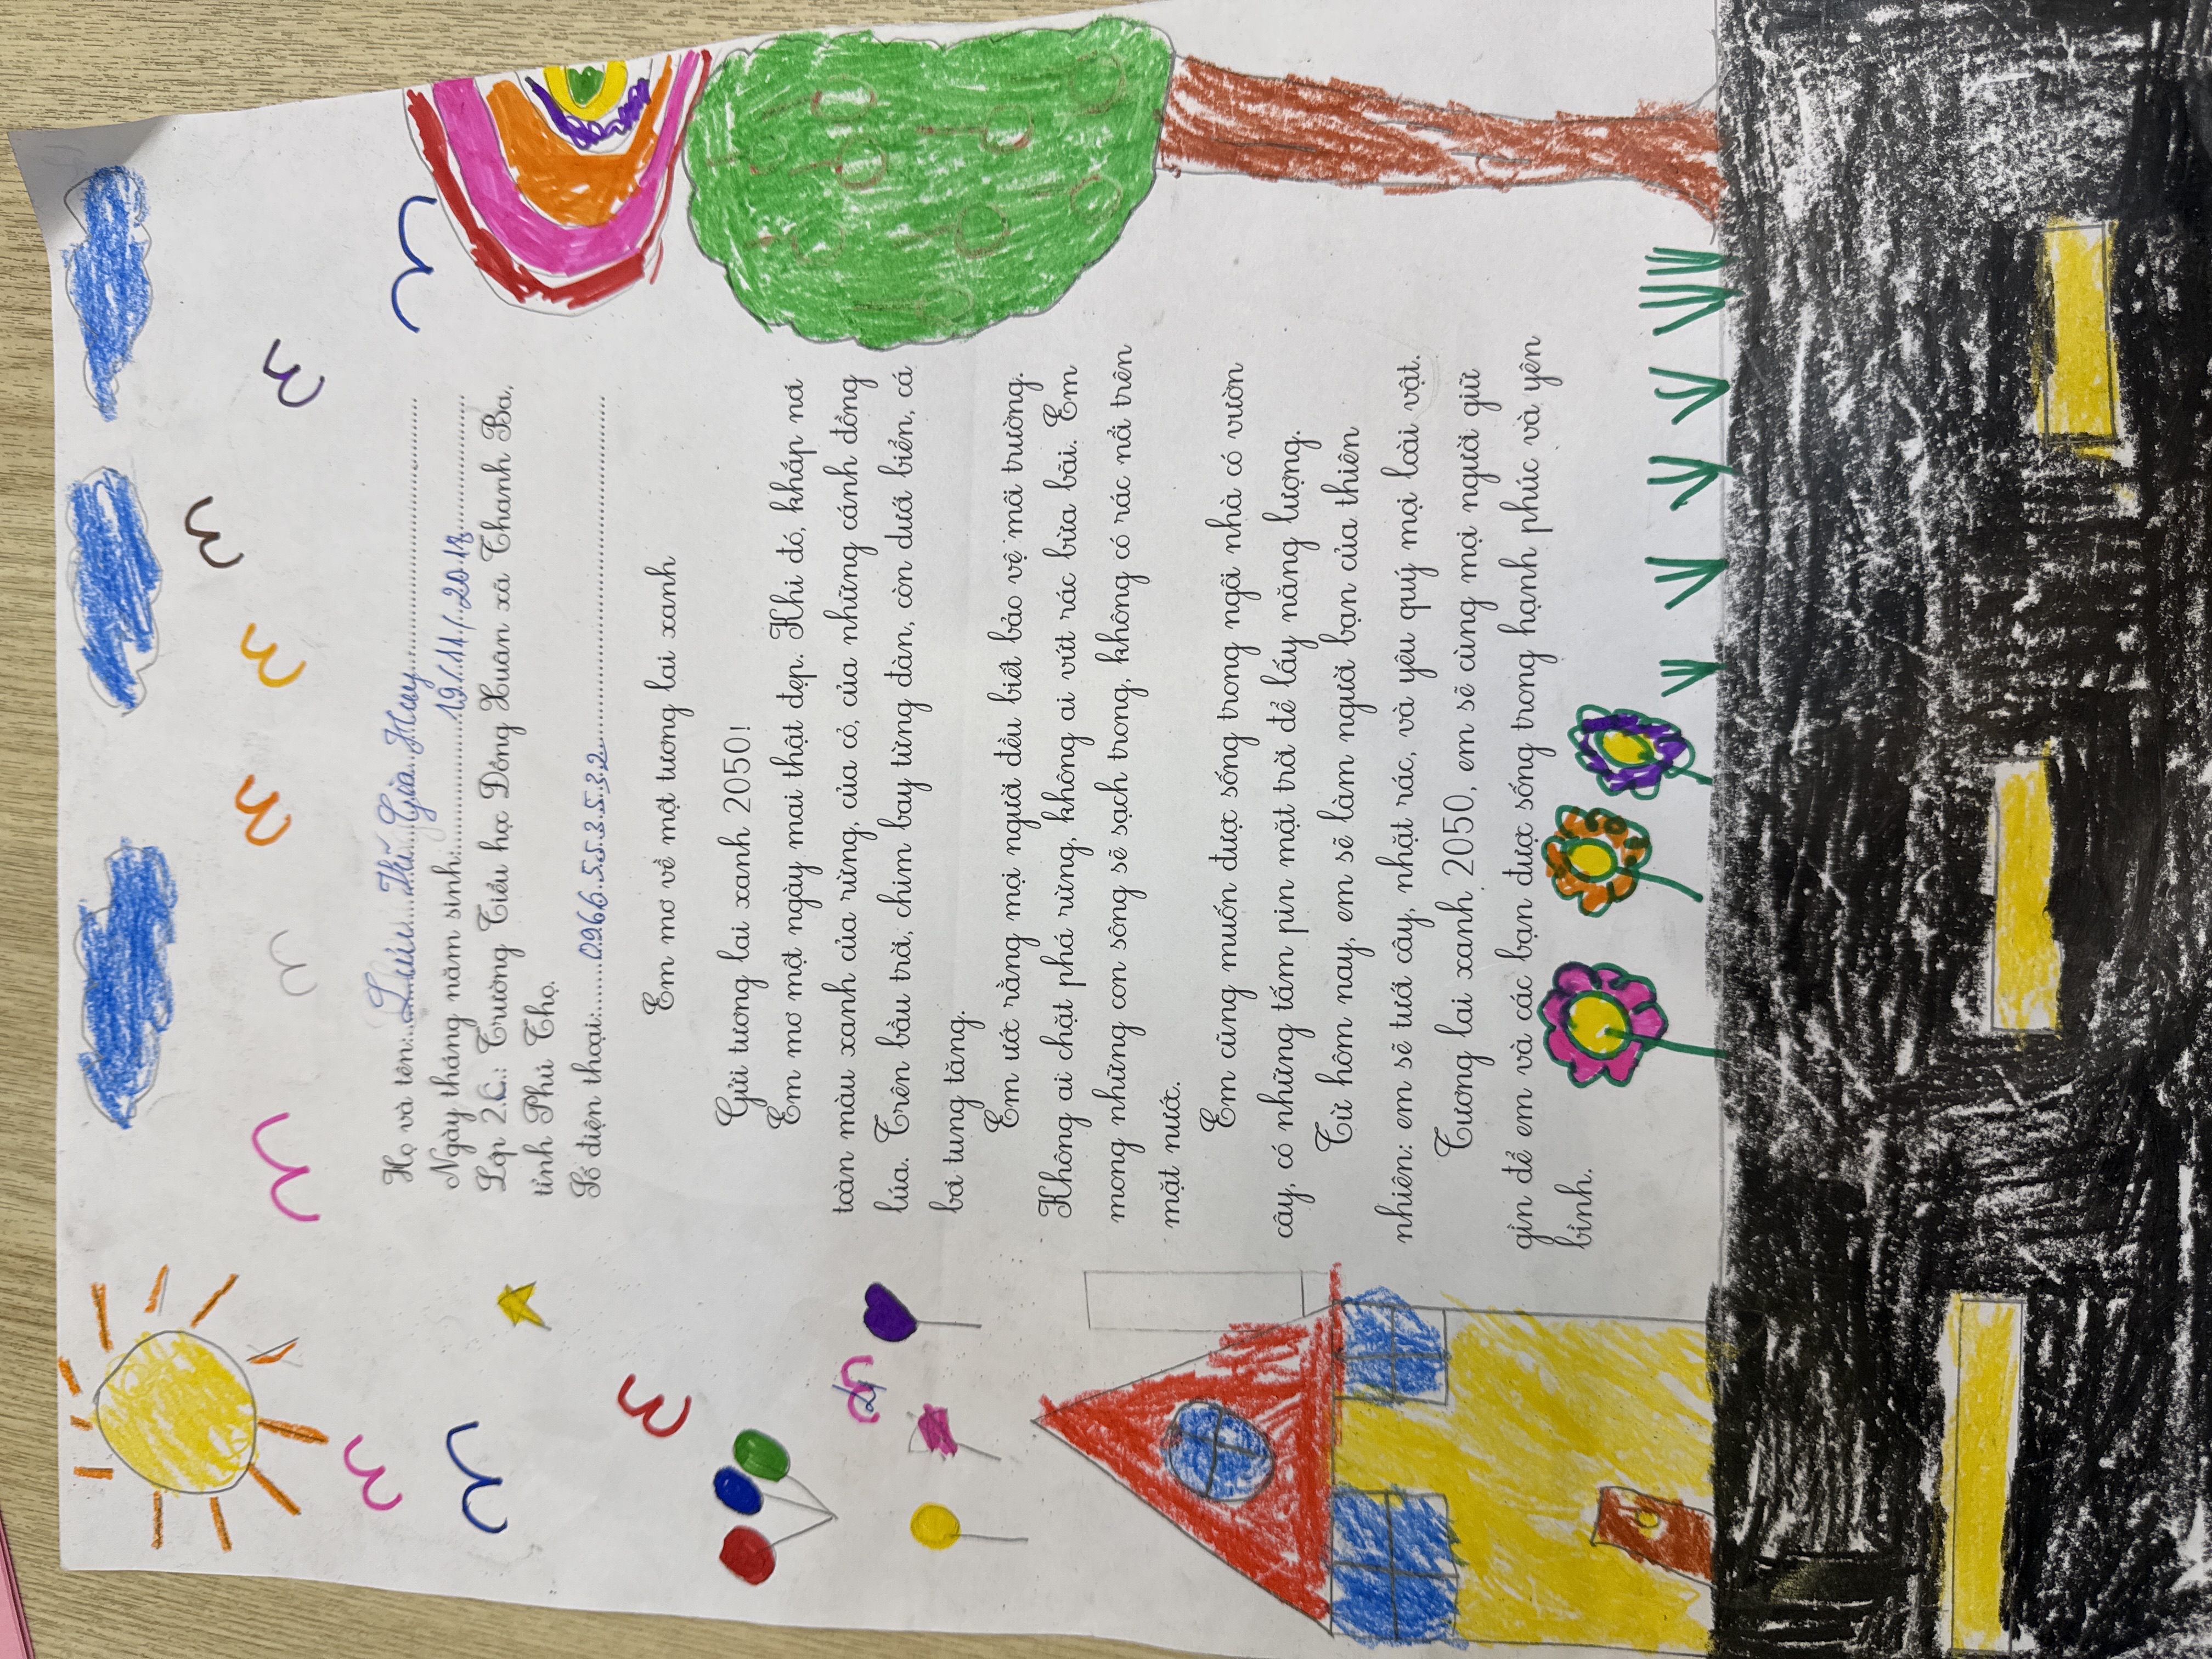 Họ và tên:..Lưu..Thế..Gia..Huy..............................
Ngày tháng năm sinh:................19./.11./.20.17...........
Lớp 2.C.: Trường Tiểu học Đông Xuân xã Thanh Ba,
tỉnh Phú Thọ.
Số điện thoại:........0.9.6.6.5.5.3.5.3.2............................................
Em mơ về một tương lai xanh
Gửi tương lai xanh 2050!
Em mơ một ngày mai thật đẹp. Khi đó, khắp nơi
toàn màu xanh của rừng, của cỏ, của những cánh đồng
lúa. Trên bầu trời, chim bay từng đàn, còn dưới biển, cá
bơi tung tăng.
Em ước rằng mọi người đều biết bảo vệ môi trường.
Không ai chặt phá rừng, không ai vứt rác bừa bãi. Em
mong những con sông sẽ sạch trong, không có rác nổi trên
mặt nước.
Em cũng muốn được sống trong ngôi nhà có vườn
cây, có những tấm pin mặt trời để lấy năng lượng.
Từ hôm nay, em sẽ làm người bạn của thiên
nhiên: em sẽ tưới cây, nhặt rác, và yêu quý mọi loài vật.
Tương lai xanh 2050, em sẽ cùng mọi người giữ
gìn để em và các bạn được sống trong hạnh phúc và yên
bình.